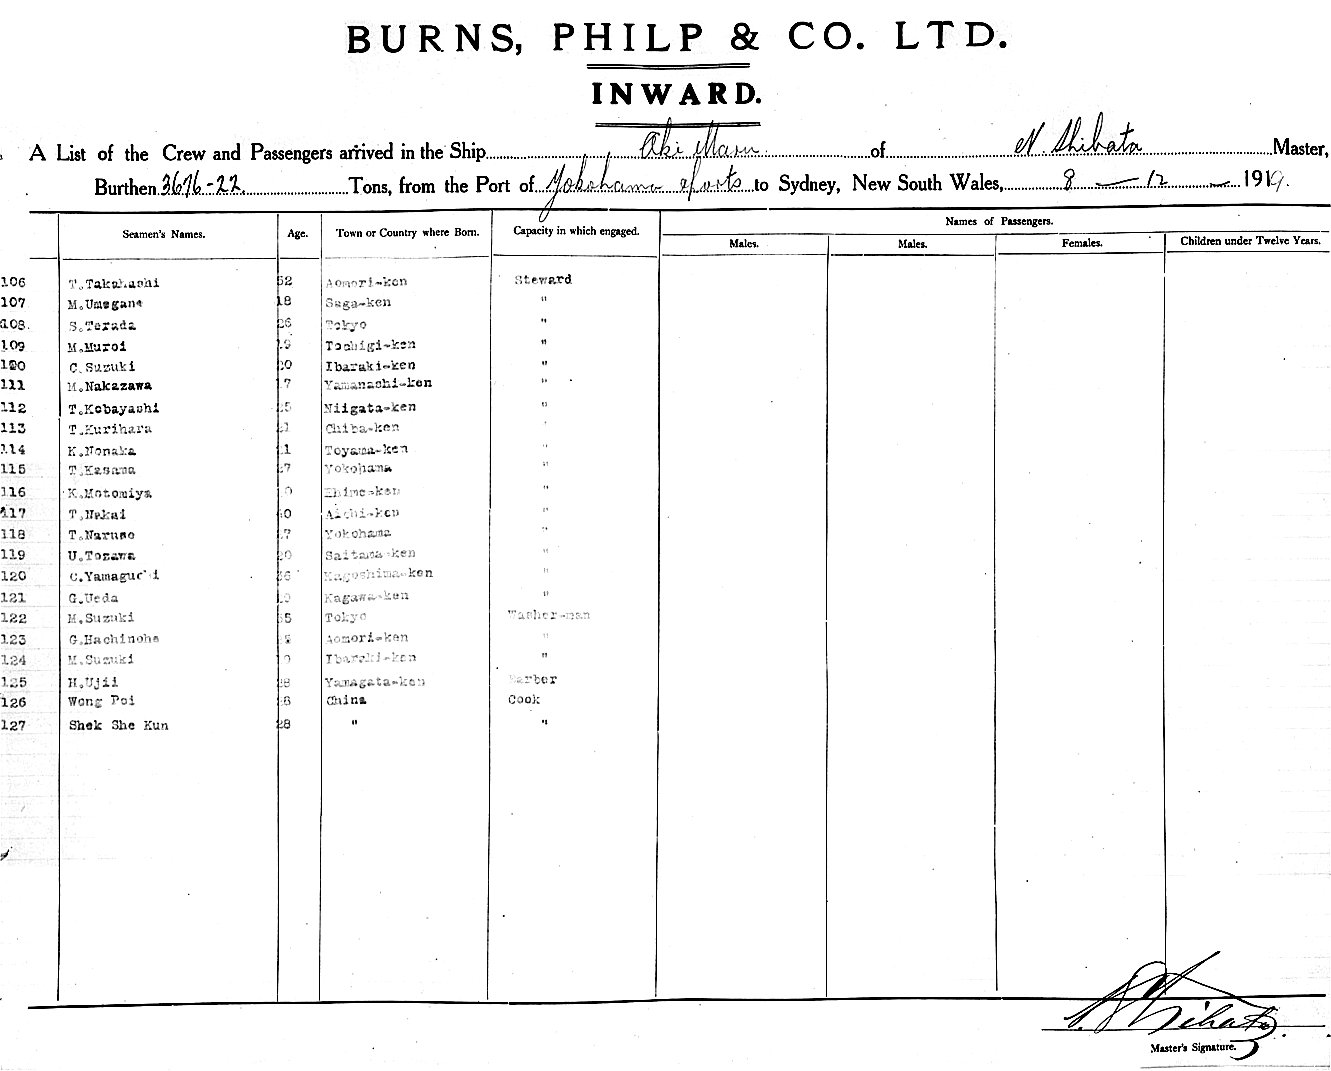 BURNS, PHILP & CO. LTD.
INWARD.
A List of the Crew and Passengers arrived in the Ship Aki Maru of N. Shibata Master,
Burthen 3676-22 Tons, from the Port of Yokohama & ports to Sydney, New South Wales, 8 — 12 — 1919.
Names of Passengers.
Seamen's Names. Age. Town or Country where Born. Capacity in which engaged. Males. Males. Females. Children under Twelve Years.
106 T.Takahashi 52 Aomori-ken Steward
107 M.Umegane 18 Saga-ken "
108. S.Terada 26 Tokyo "
109 M.Muroi Tochigi-ken "
C.Suzuki 20 Ibaraki-ken "
111 M.Nakazawa 17 Yamanashi-ken "
112 T.Kobayashi Niigata-ken "
113 T.Kurihara Chiba-ken "
114 K.Nonaka Toyama-ken "
115 T.Kasama Yokohama "
116 K.Motomiya Ehime-ken "
117 T.Nakai Aichi-ken "
118 T.Naruse Yokohama "
119 U.Tozawa 20 Saitama-ken "
120 C.Yamaguchi 36 Kagoshima-ken "
121 G.Ueda Kagawa-ken "
122 M.Suzuki Tokyo Washer-man
123 G.Hachinohe Aomori-ken "
124 M.Suzuki Ibaraki-ken "
125 H.Ujii 28 Yamagata-ken Barber
126 Wong Poi China Cook
127 Shek She Kun 28 " "
N. Shibata
Master's Signature.